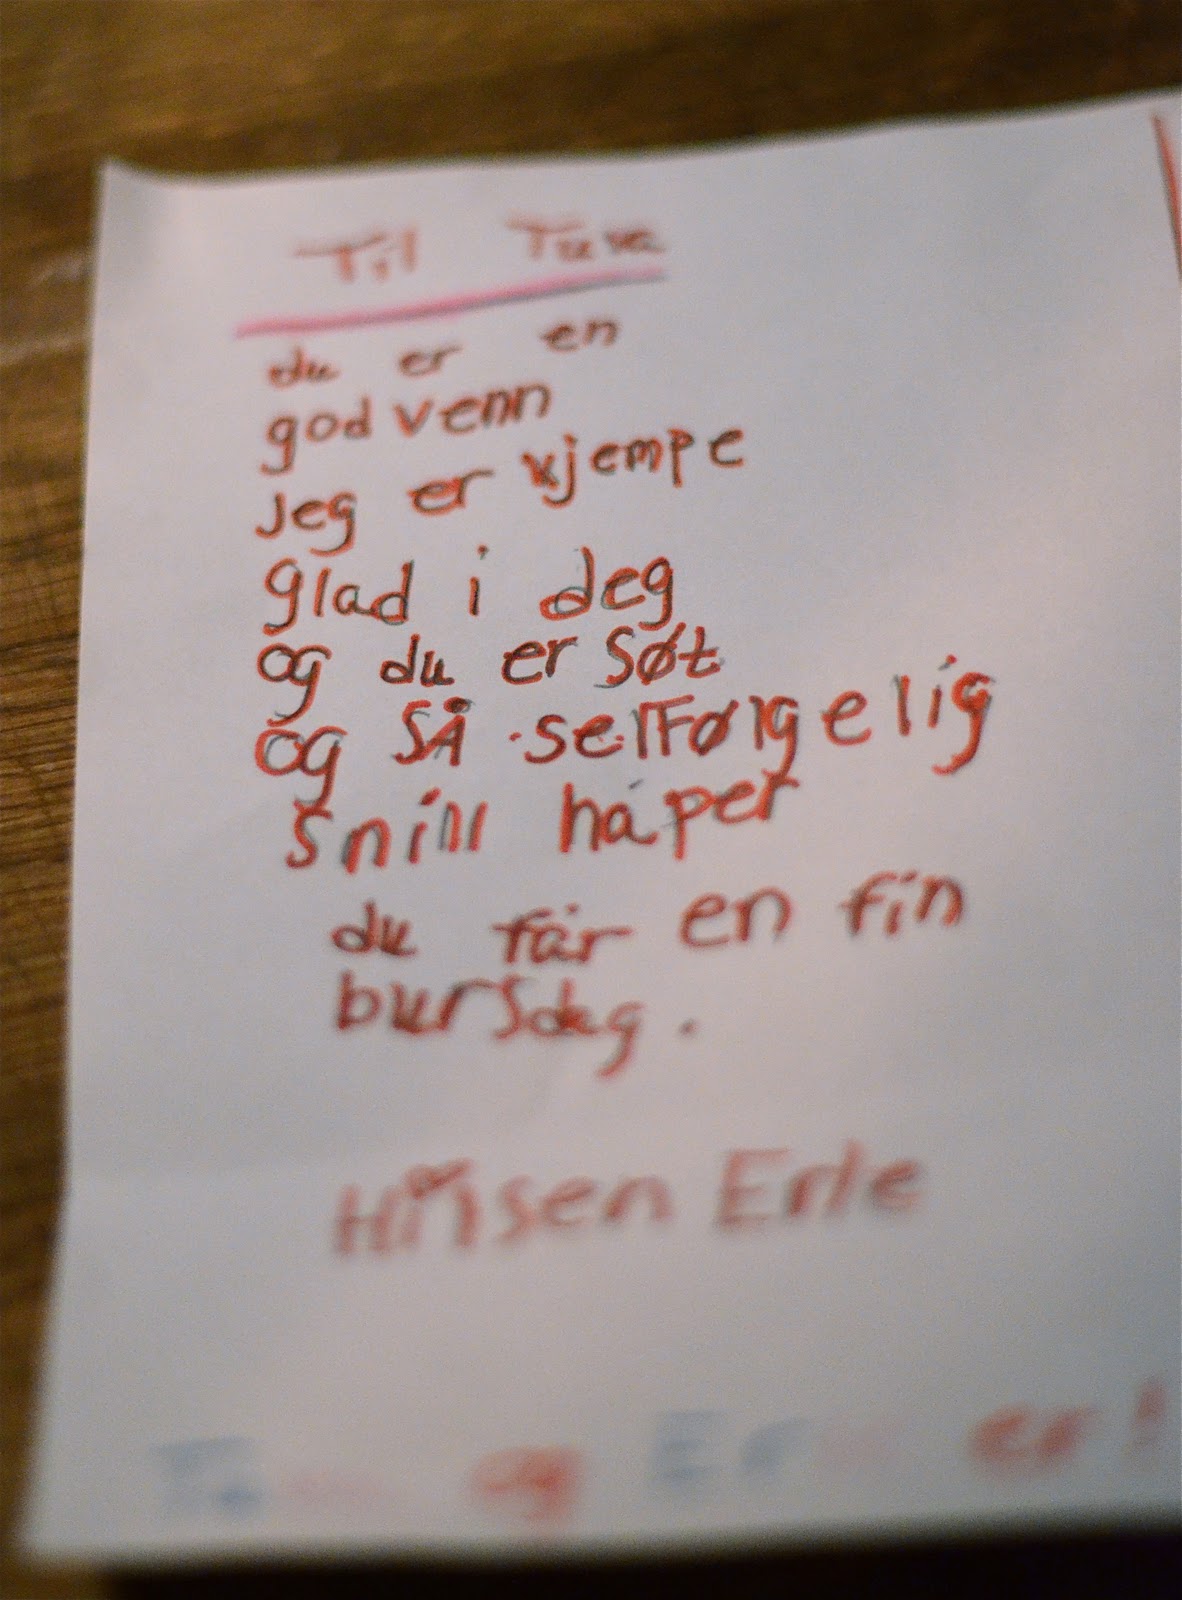 Til Tuva
du er en
god venn
Jeg er kjempe
glad i deg
og du er søt
og SÅ selfølgelig
snill håper
du får en fin
bursdag.
Hilsen Erle
og er!